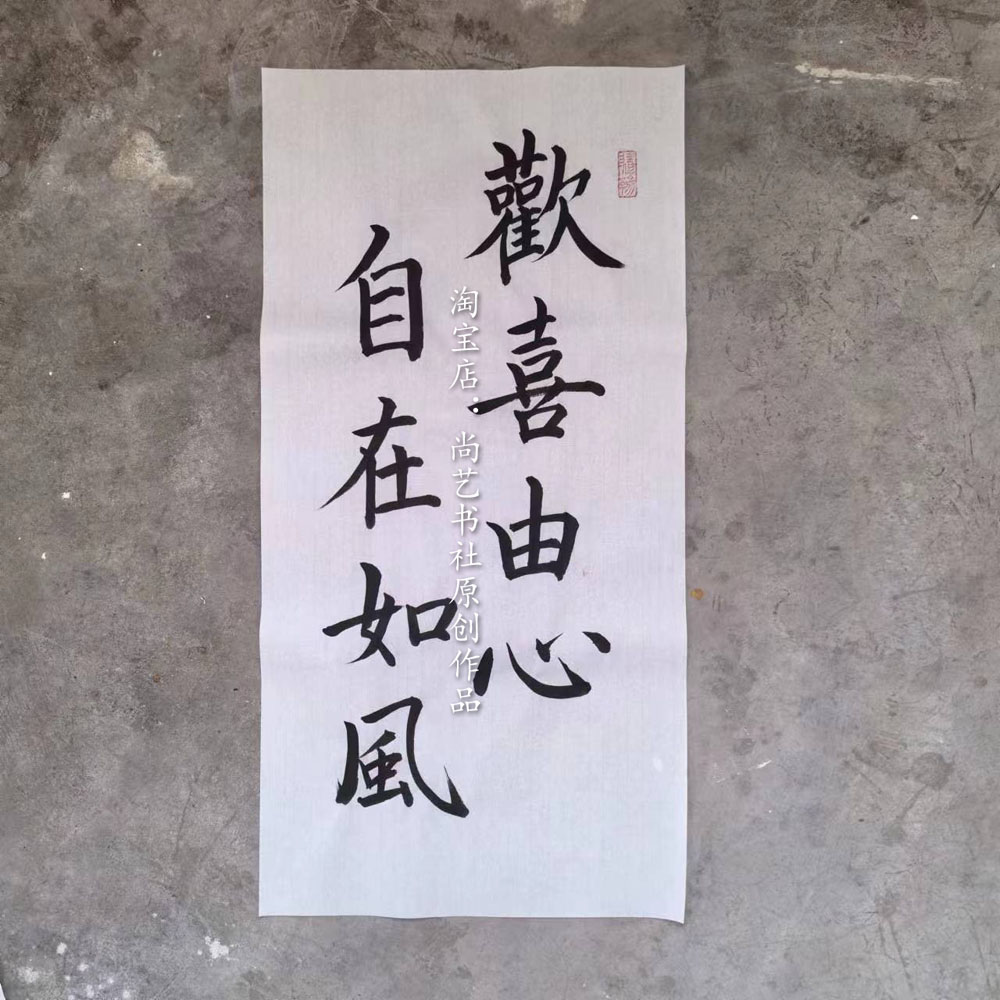 歡喜由心
自在如風
淘宝店：尚艺书社原创作品